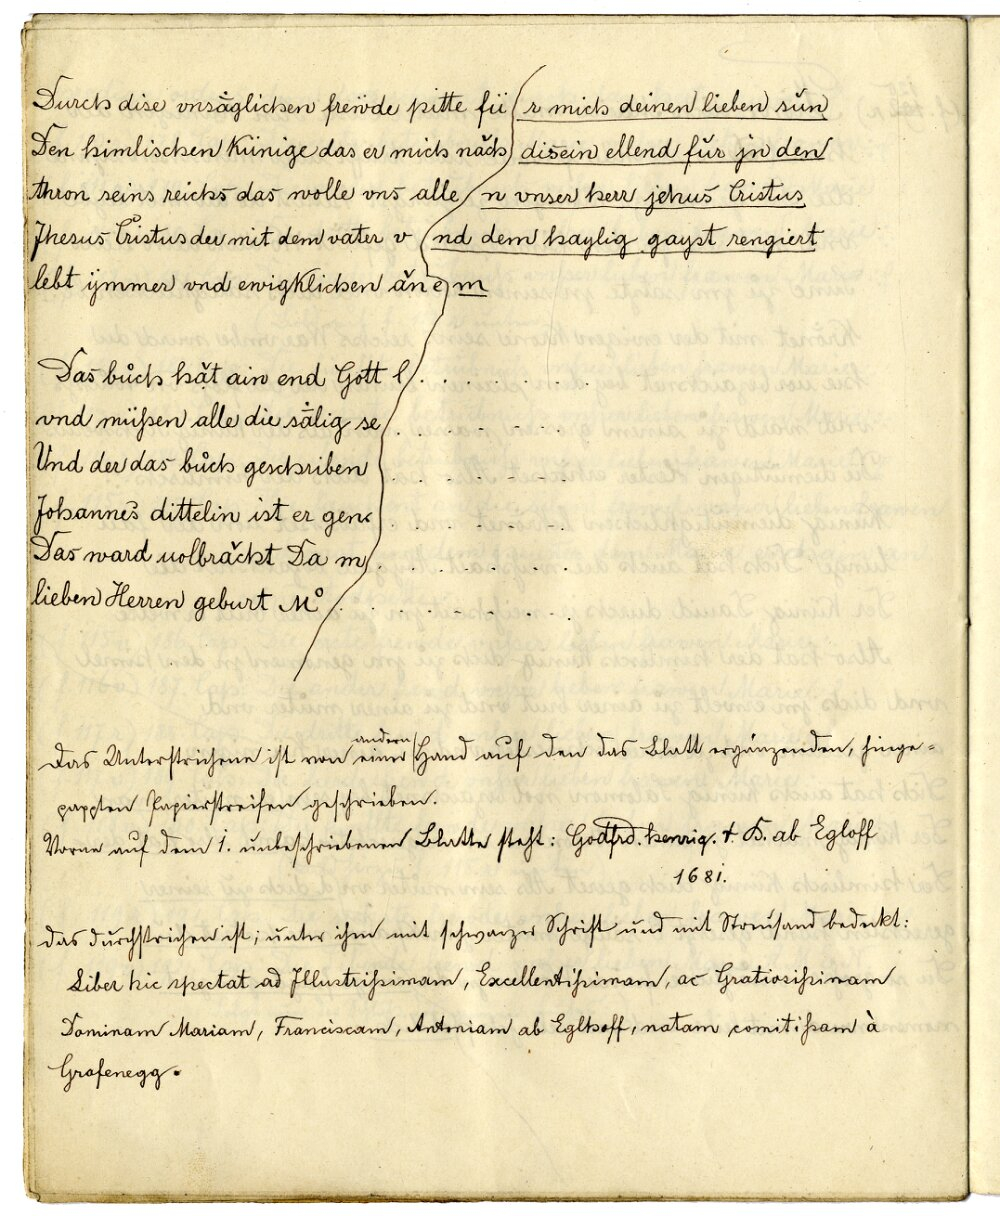 Durch dise vnsäglichen freẅde pitte fü r mich deinen lieben sůn
Den himlischen Künige das er mich nǎch disein ellend für jn den
thron seins reichs das wolle vns alle n vnser herr jehus Cristus
Jhesus Cristus der mit dem vater v nd dem haylig gayst rengiert
lebt ÿmmer vnd ewigklichen ǎn e m
Das bůch hǎt ain end Gott l . . . . . . .
vnd müßen alle die sälig se . . . . . .
Und der das bůch geschriben . . . . . .
Johannes dittelin ist er gen . . . . . .
Das ward uolbrǎcht Da m . . . . . .
lieben Herren geburt Mº . . . . .
Das Unterstrichene ist von einer andern Hand auf den das Blatt ergänzenden, hinge-
pappten Papierstreifen geschrieben.
Vorne auf dem 1. unbeschriebenen Blatte steht: Godfrd. henriq. + D. ab Egloff
1681.
das durchstrichen ist; unter ihm mit schwarzer Schrift und mit Streusand bedeckt:
Liber hic spectat ad Illustrißimam, Excellentißimam, ac Gratiosißimam
Dominam Mariam, Franciscam, Antoniam ab Eglhoff, natam comitißam à
Grafenegg.